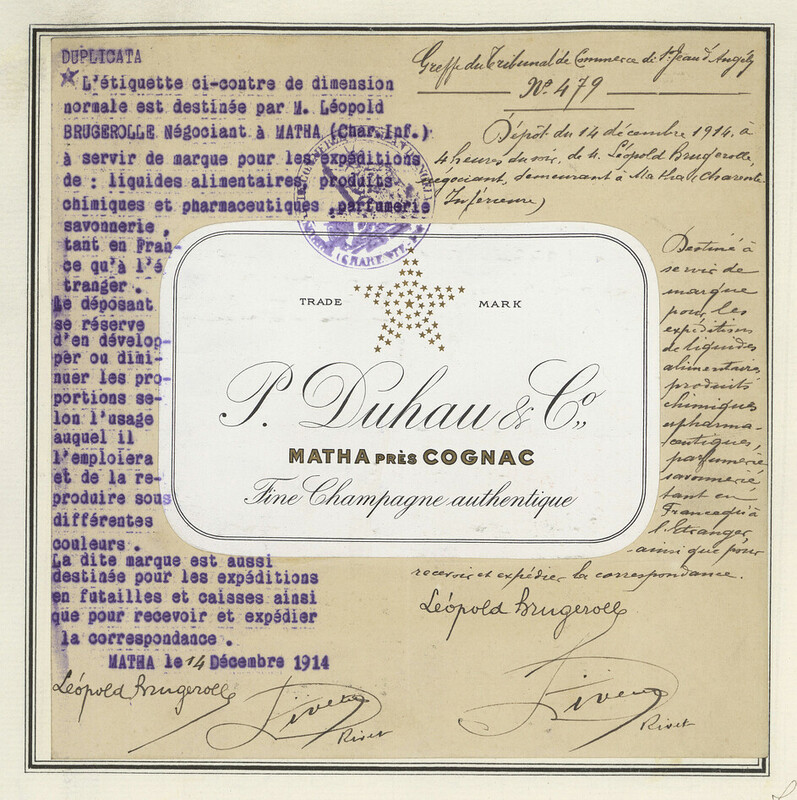 DUPLICATA
L'étiquette ci-contre de dimension
normale est destinée par M. Léopold
BRUGEROLLE Négociant à MATHA (Char.Inf.)
à servir de marque pour les expéditions
de : liquides alimentaires, produits
chimiques et pharmaceutiques, parfumerie
savonnerie,
tant en Fran-
ce qu'à l'é
tranger.
Le déposant
se réserve
d'en dévelop-
per ou dimi-
nuer les pro-
portions se-
lon l'usage
auquel il
l'emploiera
et de la re-
produire sous
différentes
couleurs.
La dite marque est aussi
destinée pour les expéditions
en futailles et caisses ainsi
que pour recevoir et expédier
la correspondance.
MATHA le 14 Décembre 1914
Léopold Brugerolle
Rivet
Greffe du Tribunal de Commerce de St Jean d'Angély
No. 479
Dépôt du 14 décembre 1914, à
4 heures du soir, de M. Léopold Brugerolle,
négociant, demeurant à Matha (Charente
Inférieure)
TRADE MARK
P. Duhau & Co,,
MATHA PRÈS COGNAC
Fine Champagne authentique
Destiné à
servir de
marque
pour les
expéditions
de liquides
alimentaires
produits
chimiques
et pharma-
ceutiques,
parfumerie
savonnerie
tant en
France qu'à
l'Etranger,
ainsi que pour
recevoir et expédier la correspondance.
Léopold Brugerolle
Rivet